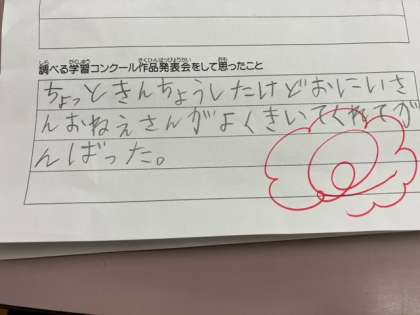 調べる学習コンクール作品発表会をして思ったこと
ちょっときんちょうしたけどおにいさ
んおねえさんがよくきいてくれてが
んばった。